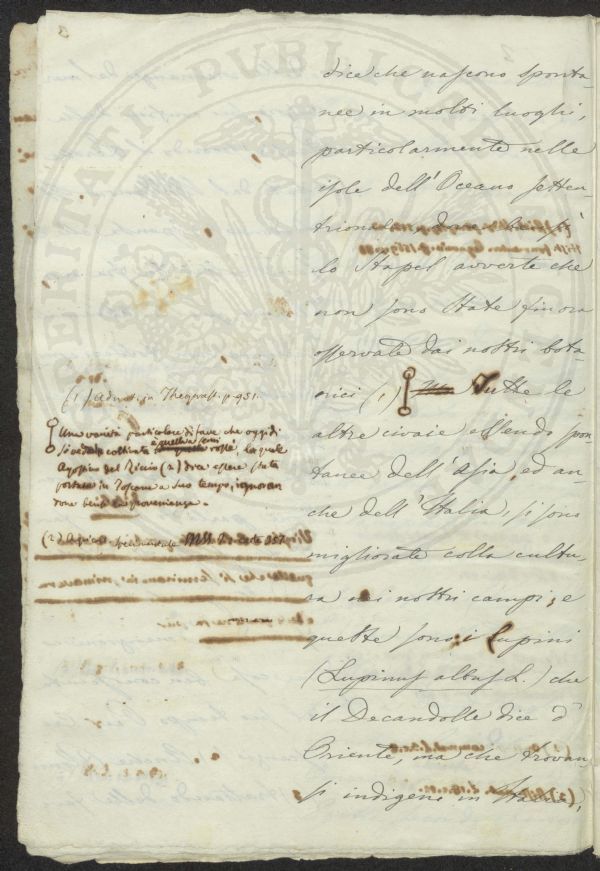 dice che nascono sponta-
nee in molti luoghi,
particolarmente nelle
isole dell'Oceano setten-
trionale
lo Stapel avverte che
non sono state finora
osservate dai nostri bota-
nici (1) Tutte le
altre civaie essendo spon-
tanee dell'Asia, ed an-
che dell'Italia, si sono
migliorate colla cultu-
ra nei nostri campi; e
queste sono i Lupini
(Lupinus albus L.) che
il Decandolle dice d'
Oriente, ma che trovan-
si indigeni in
(1) Adnot. in Theoprast. p. 931.
Una varietà particolare di fave che oggidì
si vede coltivata è quella a semi rossi, la quale
Agostino del Riccio (2) dice essere stata
portata in Toscana a suo tempo, ignoran-
done la provenienza.
(2) Agricolt. sperimentale MSS